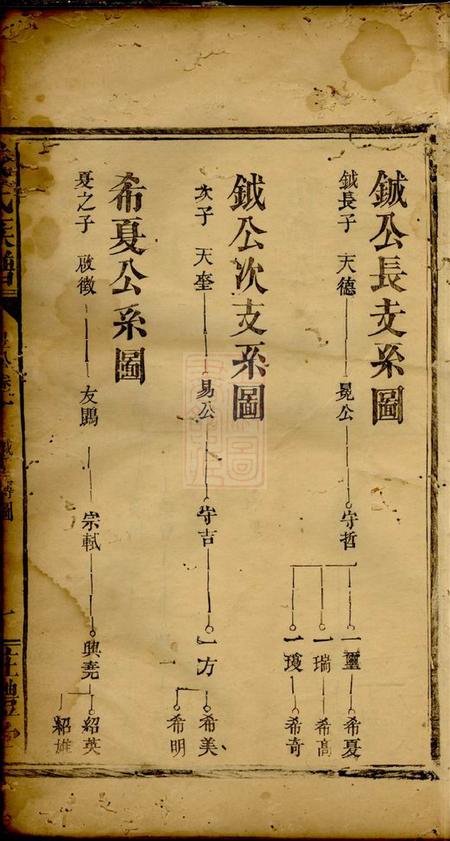 鉞公長支系圖
鉞長子 天德 晃公 守哲
一璽 希夏
一瑞 希高
一瓊 希奇
鉞公次支系圖
次子 天奎 易公 守吉 一方
希美
希明
希夏公系圖
夏之子 啟徵 友鵾 宗軾 興堯
紹英
紹雄
氏族譜